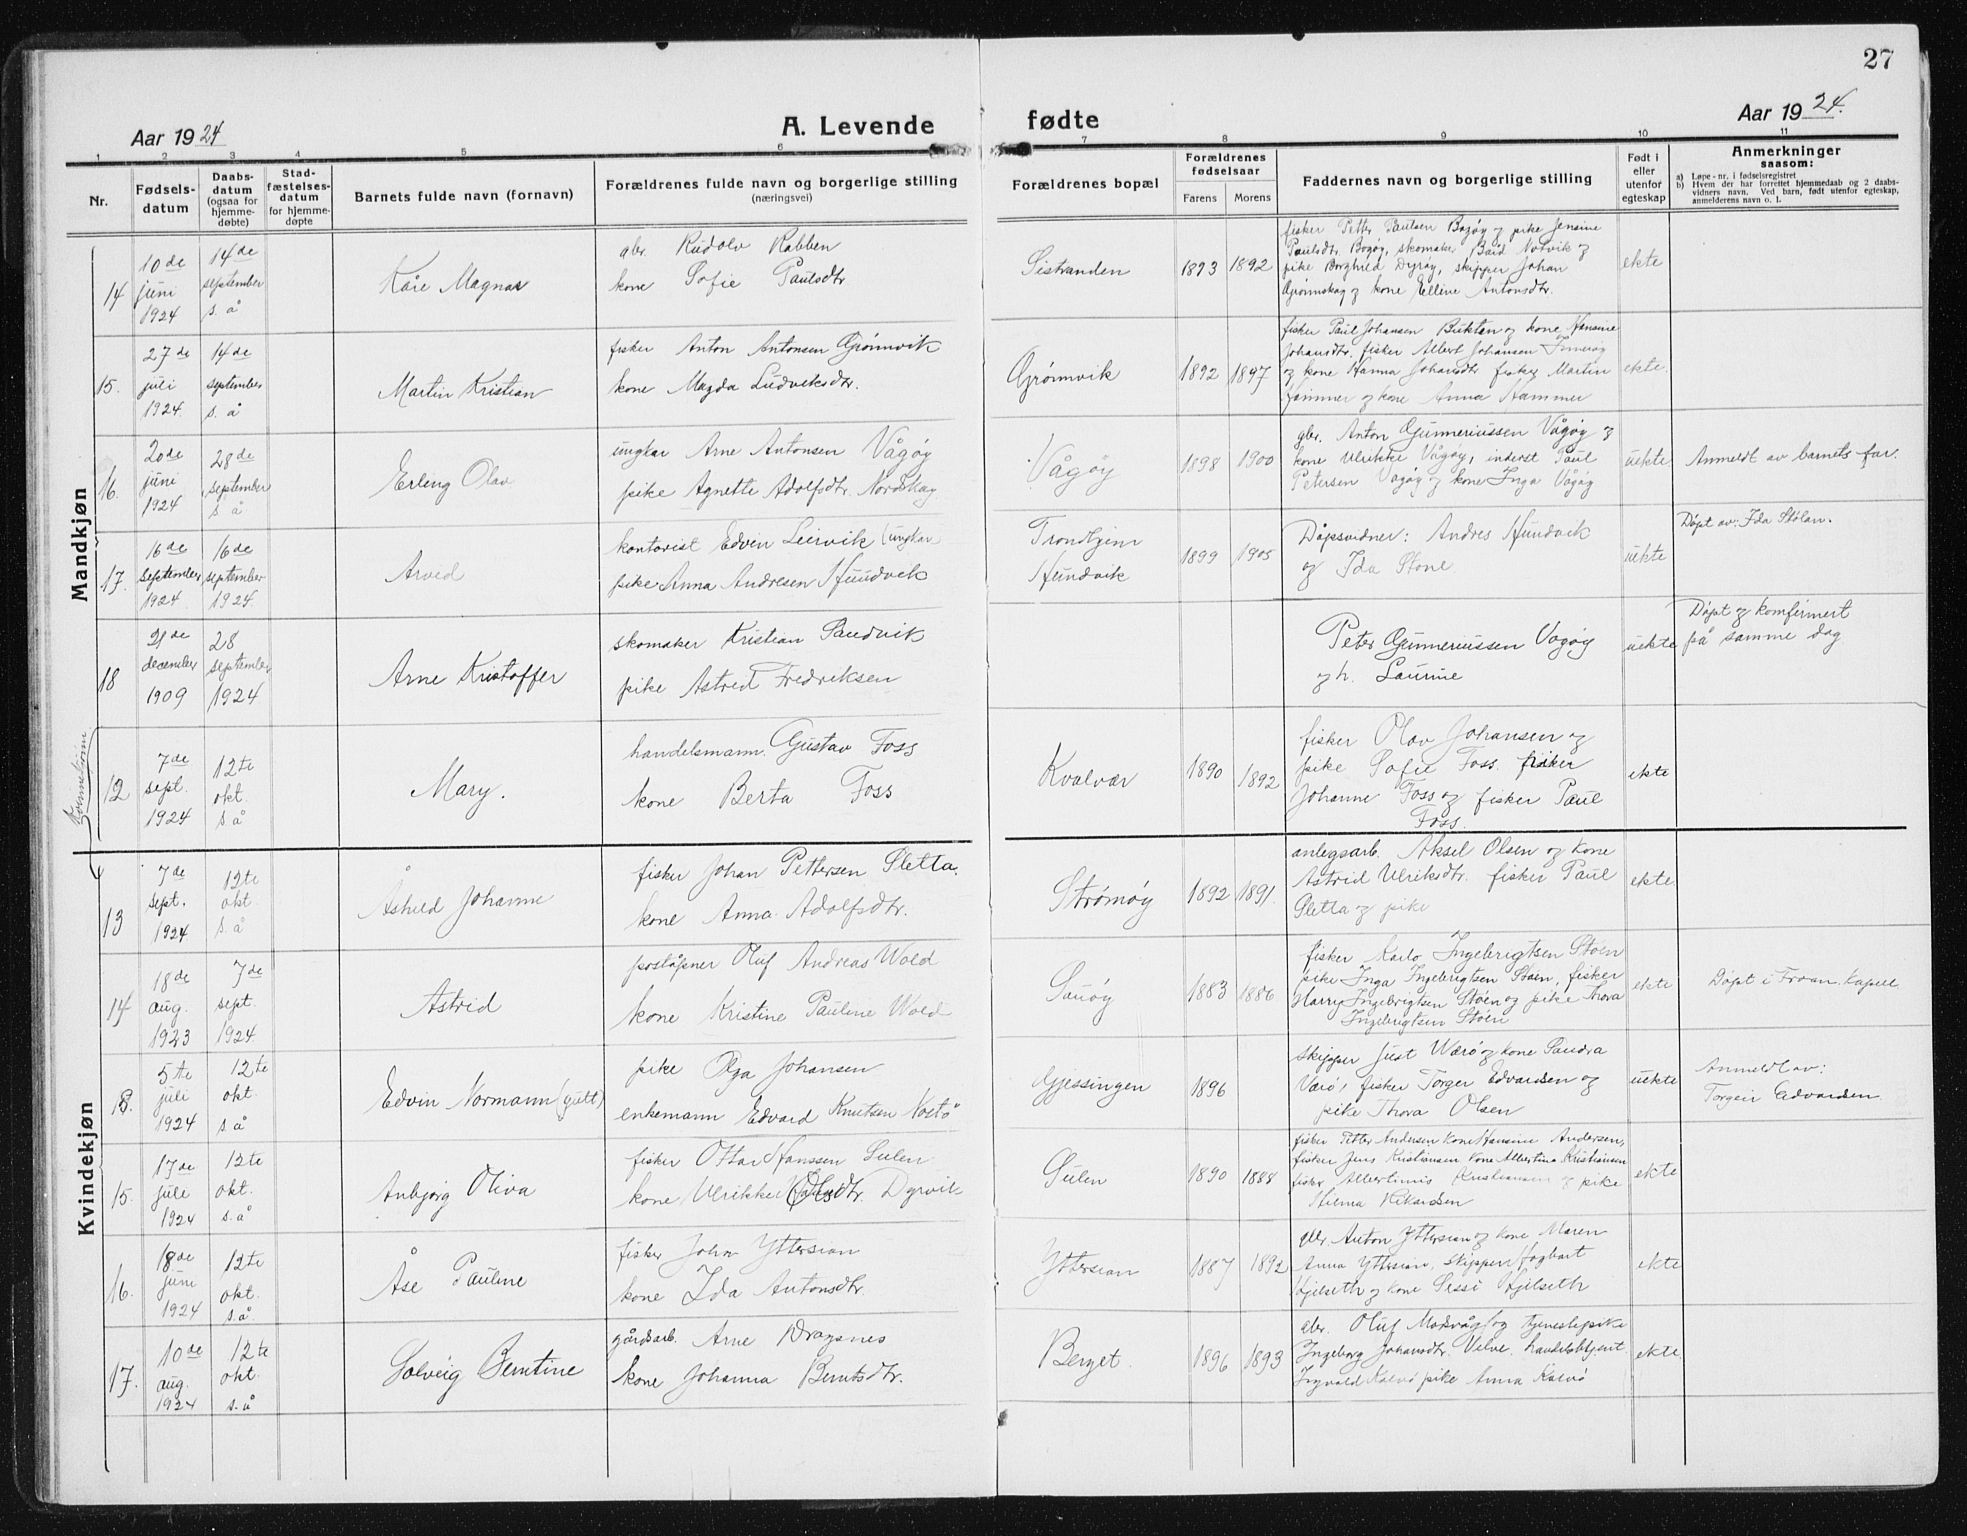 27
Aar 1924
A. Levende
fødte
Aar 1924.
1 2 3 4 5 6 7 8 9 10 11
Nr.
Fødsels-
datum
Daabs-
datum
(ogsaa for
hjemme-
døbte)
Stad-
fæstelses-
datum
for hjemme-
døpte
Barnets fulde navn (fornavn)
Forældrenes fulde navn og borgerlige stilling
(næringsvei)
Forældrenes bopæl
Forældrenes
fødselsaar
Farens Morens
Faddernes navn og borgerlige stilling
Født i
eller
utenfor
egteskap
Anmerkninger
saasom:
a) Løpe-nr. i fødselsregistret
b) Hvem der har forrettet hjemmedaab og 2 daabs-
vidners navn. Ved barn, født utenfor egteskap,
anmelderens navn o. l.
Mandkjøn
14
10de
juni
1924
14de
september
s. å
Kåre Magnar
gbr. Rudolv Rabben
kone Sofie Paulsdtr
Sistranden
1893 1892
fisker Petter Paulsen Bogøy og pike Jensine
Paulsdtr. Bogøy, skomaker Bård Notvik og
pike Borghild Dyrøy, skipper Johan
Grønnskag og kone Elline Antonsdtr.
ekte
15.
27de
juli
1924.
14de
september
s. å
Martin Kristian
fisker Anton Antonsen Grønnvik
kone Magda Ludviksdtr.
Grønnvik
1892 1897
fisker Paul Johansen Buktan og kone Hansine
Johansdtr. fisker Albert Johansen
og kone Hanna Johansdtr fisker Martin
Hammer og kone Anna Hammer
ekte.
16.
20de
juni
1924
28de
september
s å
Erling Olav
ungkar Arne Antonsen Vågøy
pike Agnette Adolfsdtr. Nordskag
Vågøy
1898 1900
gbr. Anton Gunneriussen Vågøy og
kone Ulrikke Vågøy, inderst Paul
Petersen Vågøy og kone Inga Vågøy
uekte.
Anmeldt av barnets far.
17.
16de
september
1924.
16de
september
1924
Arved
kontorist Edvin Leirvik (ungkar)
pike Anna Andresen Hundvik
Trondhjem
Hundvik
1899 1905
Dåpsvidner: Andres Hundvik
og Ida Stone.
uekte
Døpt av: Ida Stølan.
18
21de
december
1909
28
september
1924
Arne Kristoffer
skomaker Kristian Sandvik
pike Astrid Fredriksen
Peter Gunneriussen Vågøy
og h. Laurine
uekte
Døpt og komfirmert
på samme dag
Kvinnekjønn
12
7de
sept.
1924
12te
okt.
s. å
Mary.
handelsmann. Gustav Foss
kone Berta Foss
Kvalvær
1890 1892
fisker Olav Johansen og
pike Sofie Foss. fisker
Johanne Foss og fisker Paul
Foss.
ekte
Kvindekjøn
13
7de
sept.
1924
12te
okt.
s. å
Åshild Johanne
fisker Johan Pettersen Sletta.
kone Anna Adolfsdtr.
Strømøy
1892 1891.
anlegsarb. Aksel Olsen og kone
Astrid Ulriksdtr. fisker Paul
Sletta og pike
ekte
14
18de
aug.
1923
7de
sept.
1924.
Astrid
poståpner Oluf Andreas Wold
kone Kristine Pauline Wold
Sauøy
1883 1886
fisker Karlo Ingebrigtsen Støen
pike Inga Ingebrigtsen Støen, fisker
Harry Ingebrigtsen Støen og pike Thora
Ingebrigtsen Støen
ekte
Døpt i Froan Kapell
5te
juli
1924
12te
okt.
s. å
Edvin Normann (gutt)
pike Olga Johansen
enkemann Edvard Knutsen Nostø
Gjessingen
1896
skipper Just Værø og kone Sandra
Værø, fisker Torger Edvardsen og
pike Thora Olsen
uekte
Anmeldt av:
Torgeir Edvardsen
15.
17de
juli
1924
12te
okt.
s. å
Anbjørg Oliva
fisker Ottar Hanssen Sulen
kone Ulrikke Olsdtr. Dyrvik
Sulen
1890 1888
fisker Petter Andersen kone Hansine Andersen,
fisker Jens Kristiansen kone Albertina Kristiansen
fisker Kristiansen og pike
Hilma
ekte
16.
18de
juni
1924
12te
okt.
s. å.
Åse Pauline
fisker John Yttersian
kone Ida Antonsdtr.
Yttersian
1887 1892
gbr. Anton Yttersian og kone Maren
Anna Yttersian, skipper Hagbart
Hjelseth og kone Sessi Hjelseth
ekte
17.
10de
aug.
1924
12te
okt.
s. å
Solveig Berntine
gårdsarb. Arne Dragsnes
kone Johanna Berntsdtr.
Berget.
1896 1893
gbr. Oluf og tjenestepike
Ingeborg Johansdtr. Velve. handelsbetjent
Ingvald Kalvø pike Anna Kalvø
ekte.